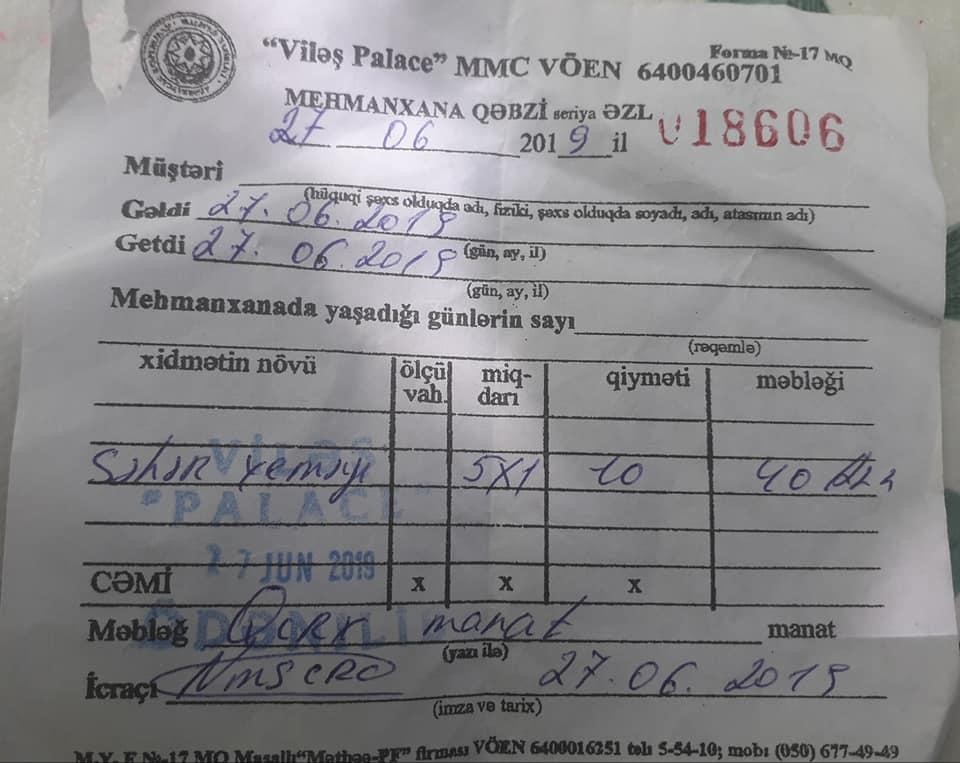 "Viləş Palace" MMC VÖEN 6400460701
Forma №-17 MQ
MEHMANXANA QƏBZİ seriya ƏZL 018606
27 06 2019 il
Müştəri
(hüquqi şəxs olduqda adı, fiziki, şəxs olduqda soyadı, adı, atasının adı)
Gəldi 27. 06. 2019
(gün, ay, il)
Getdi 27. 06. 2019
(gün, ay, il)
Mehmanxanada yaşadığı günlərin sayı
(rəqəmlə)
xidmətin növü ölçü vah. miq-darı qiyməti məbləği
Səhər yeməyi 5X1 10 40
VİLƏŞ
"PALACE"
27 JUN 2019
ÖDƏNİLİ
CƏMİ x x x
Məbləğ manat manat
(yazı ilə)
İcraçı 27. 06. 2019
(imza və tarix)
M.Y. F №-17 MQ Masallı "Mətbəə-PF" firması VÖEN 6400016251 tel: 5-54-10; mob: (050) 677-49-49